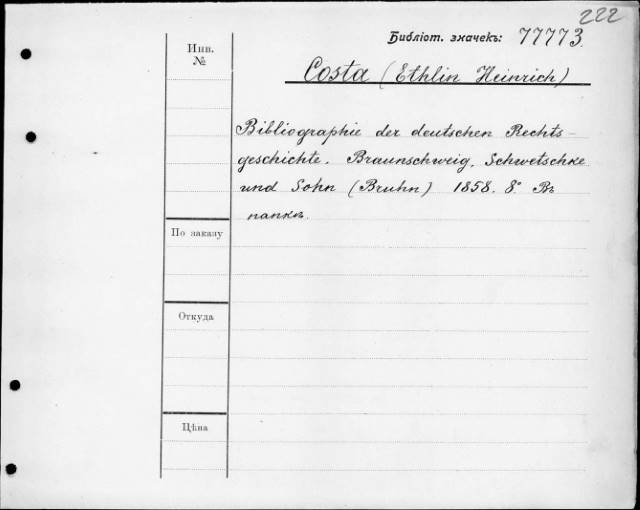 222
Библіот. значекъ: 77773.
Инв.
№
Costa (Ethlin Heinrich)
Bibliographie der deutschen Rechts-
geschichte. Braunschweig, Schwetschke
und Sohn (Bruhn) 1858. 8°. Въ
папкѣ.
По заказу
Откуда
Цѣна